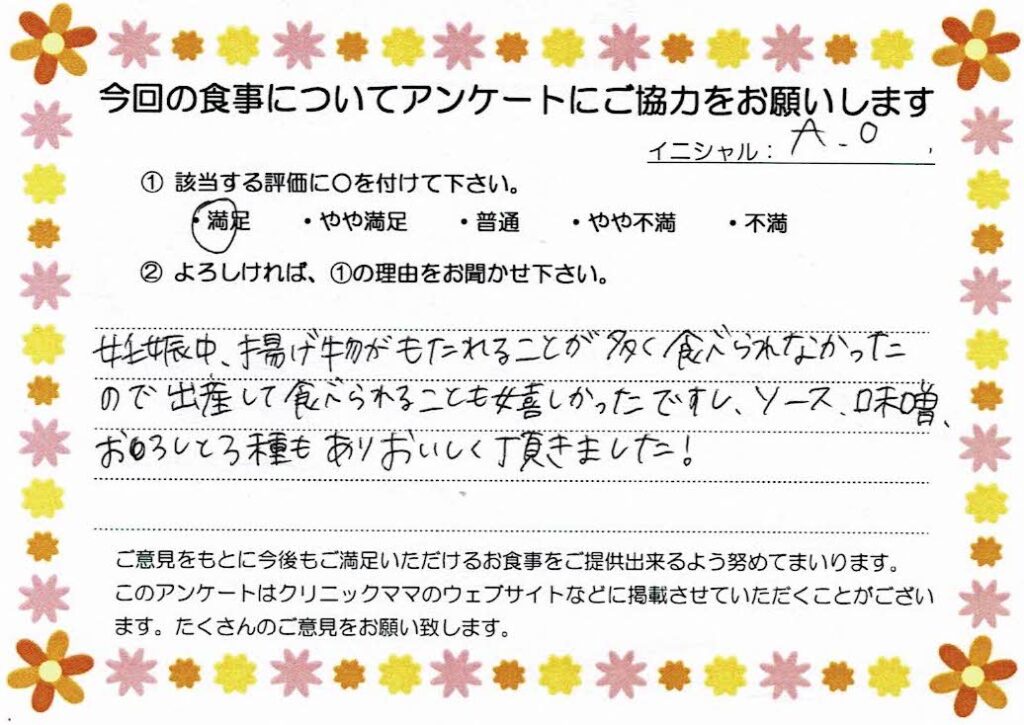 今回の食事についてアンケートにご協力をお願いします
イニシャル： A.O
① 該当する評価に〇を付けて下さい。
・満足 ・やや満足 ・普通 ・やや不満 ・不満
② よろしければ、①の理由をお聞かせ下さい。
妊娠中、揚げ物がもたれることが多く食べられなかった
ので出産して食べられることも嬉しかったですし、ソース、味噌、
おろしと3種もありおいしく頂きました！
ご意見をもとに今後もご満足いただけるお食事をご提供出来るよう努めてまいります。
このアンケートはクリニックママのウェブサイトなどに掲載させていただくことがござい
ます。たくさんのご意見をお願い致します。